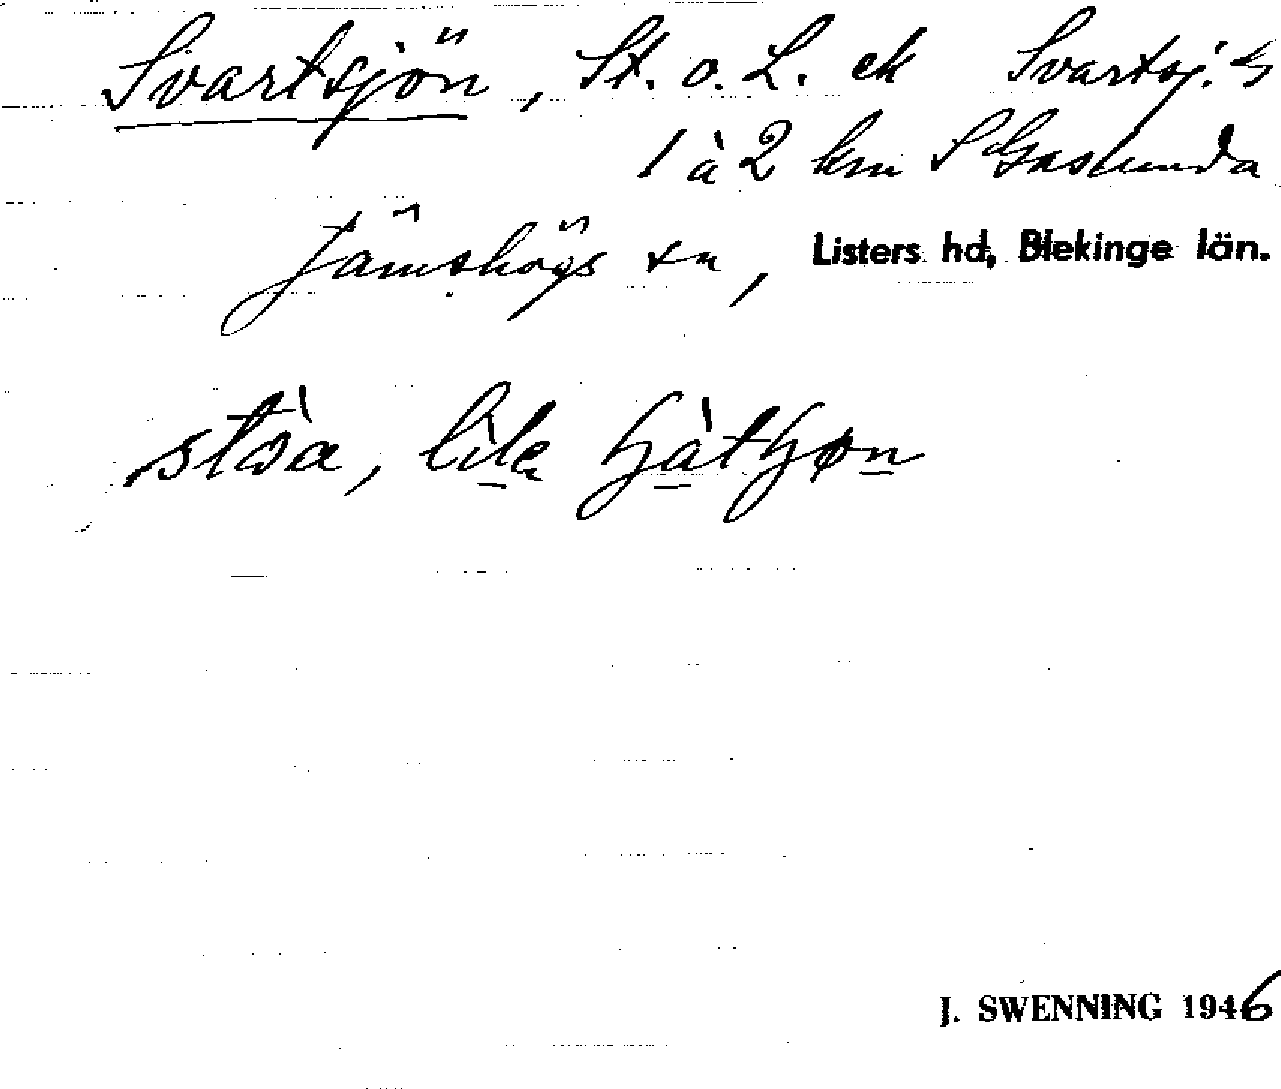 Svartsjön, St. o. L. ek Svartsj. G
1 à 2 km S Gaslunda
Jämshögs sn, Listers hd, Blekinge län.
J. SWENNING 1946